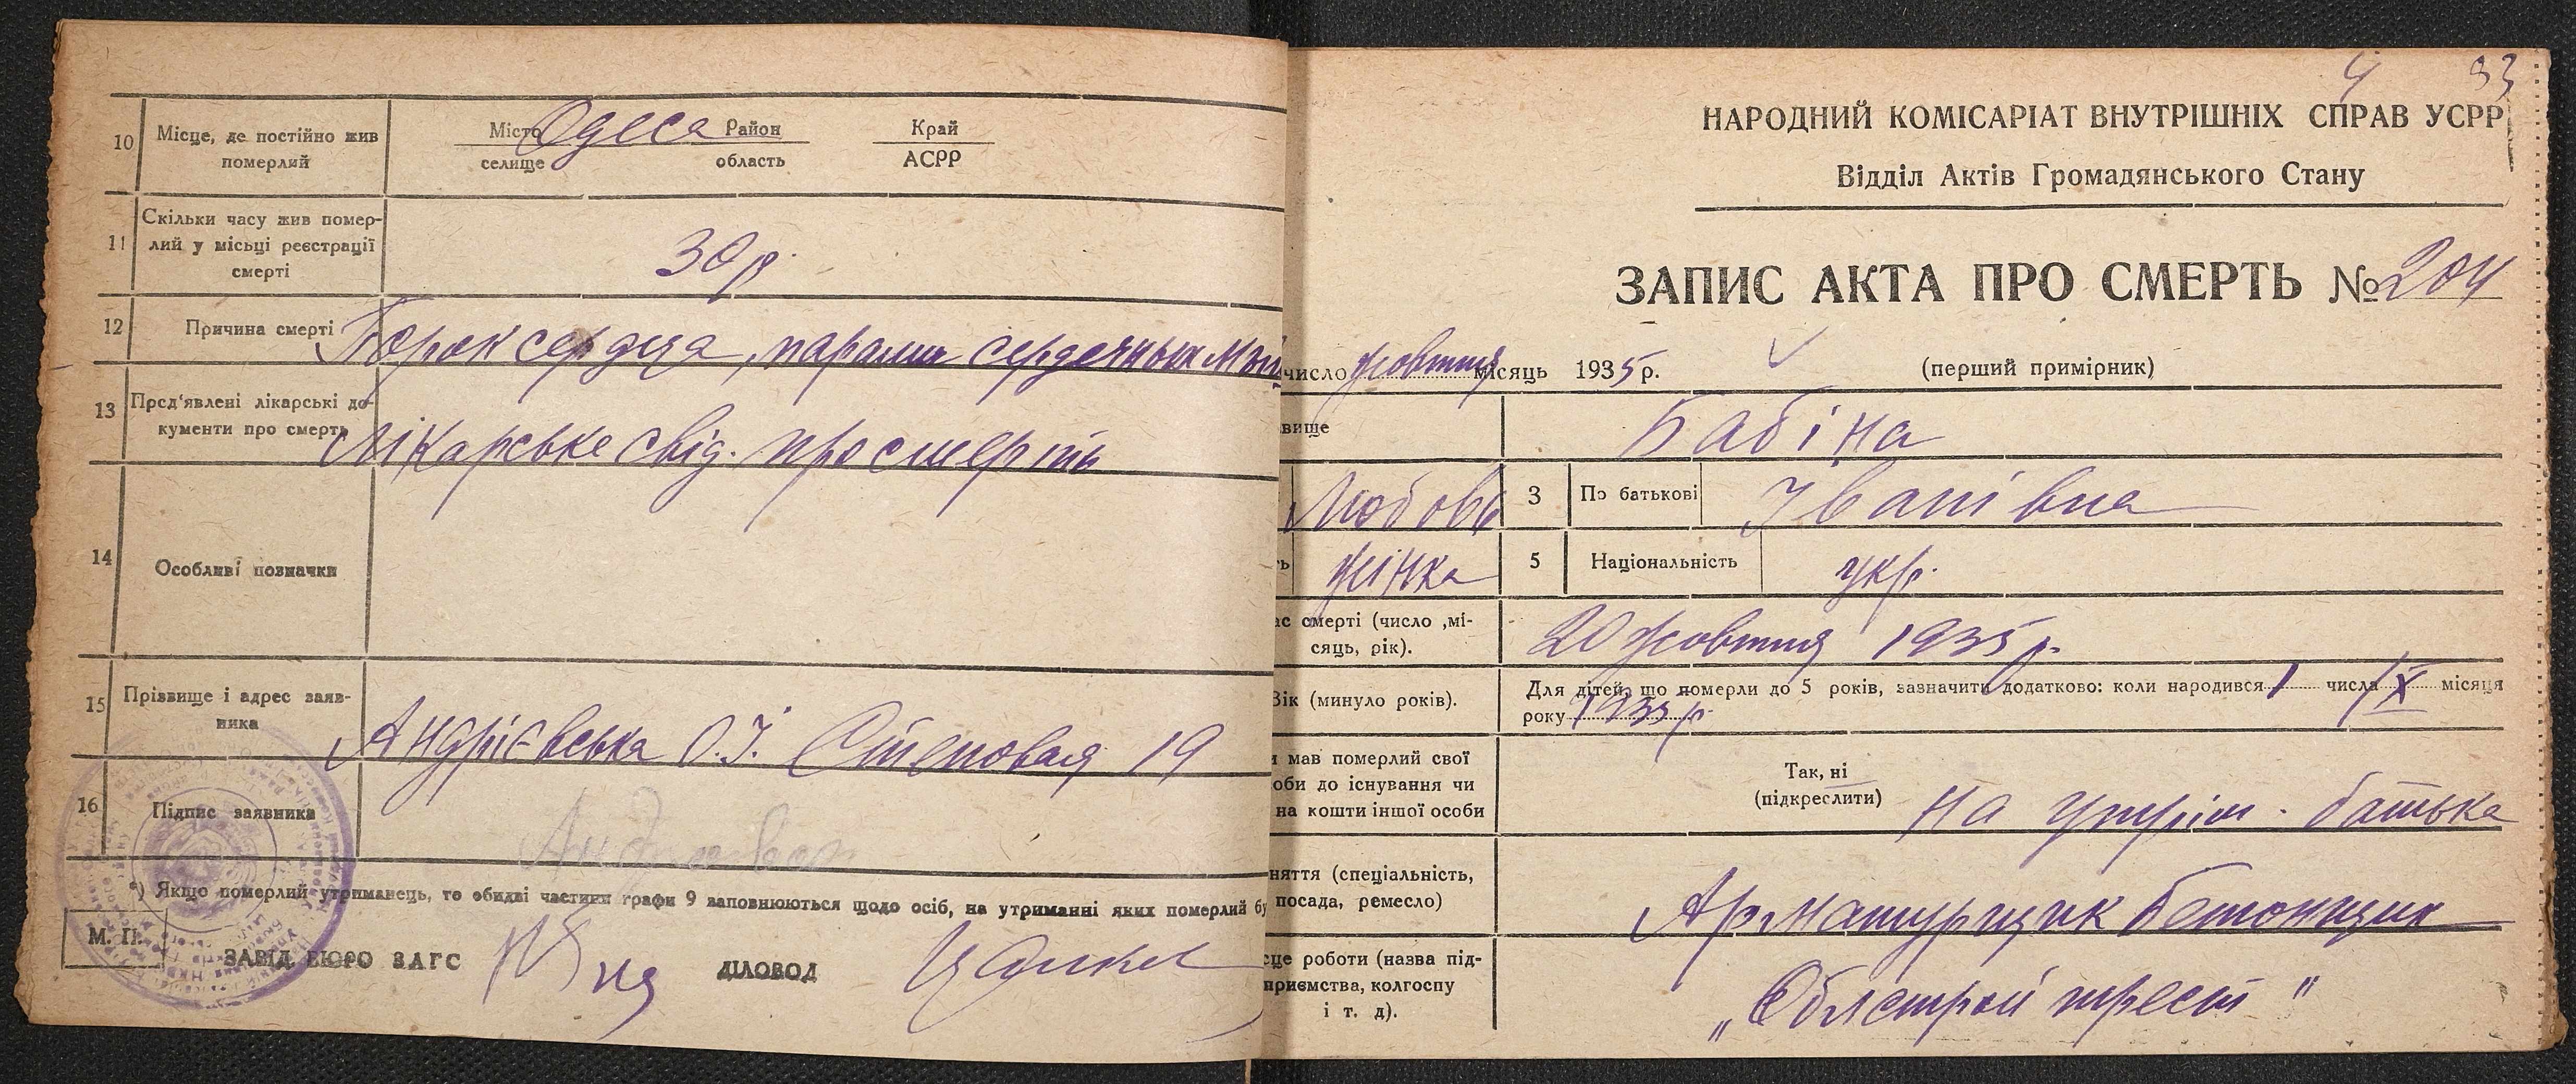 10 Місце, де постійно жив померлий
Місто селище Одеса Район область Край АСРР
11 Скільки часу жив помер-
лий у місьці реєстрації
смерті
30 р.
12 Причина смерті Порок сердца, паралич сердечных мыш
13 Пред'явлені лікарські до-
кументи про смерть
Лікарське свід. про смерть
14 Особливі позначки
15 Прізвище і адрес заяв-
ника
Андрієвська О. І. Степовая 19
16 Підпис заявника
*) Якщо померлий утриманець, то обидві частини графи 9 заповнюються щодо осіб, на утриманні яких померлий бу
М. П.
ЗАВІД. БЮРО ЗАГС
ДІЛОВОД
4 93
НАРОДНИЙ КОМІСАРІАТ ВНУТРІШНІХ СПРАВ УСРР
Відділ Актів Громадянського Стану
ЗАПИС АКТА ПРО СМЕРТЬ № 204
число жовтня місяць 1935 р. (перший примірник)
вище Бабіна
Любовь 3 По батькові Іванівна
ь жінка 5 Національність укр.
ас смерті (число ,мі-
сяць, рік).
20 жовтня 1935 р.
Вік (минуло років).
Для дітей, що померли до 5 років, зазначити додатково: коли народився 1 числа IX місяця
року 1935 р.
и мав померлий свої
оби до існування чи
на кошти іншої особи
Так, ні
(підкреслити)
на утрім. батька
няття (спеціальність,
посада, ремесло)
Арматурщик бетонщик
сце роботи (назва під-
приємства, колгоспу
і т. д).
„Облстрой трест"